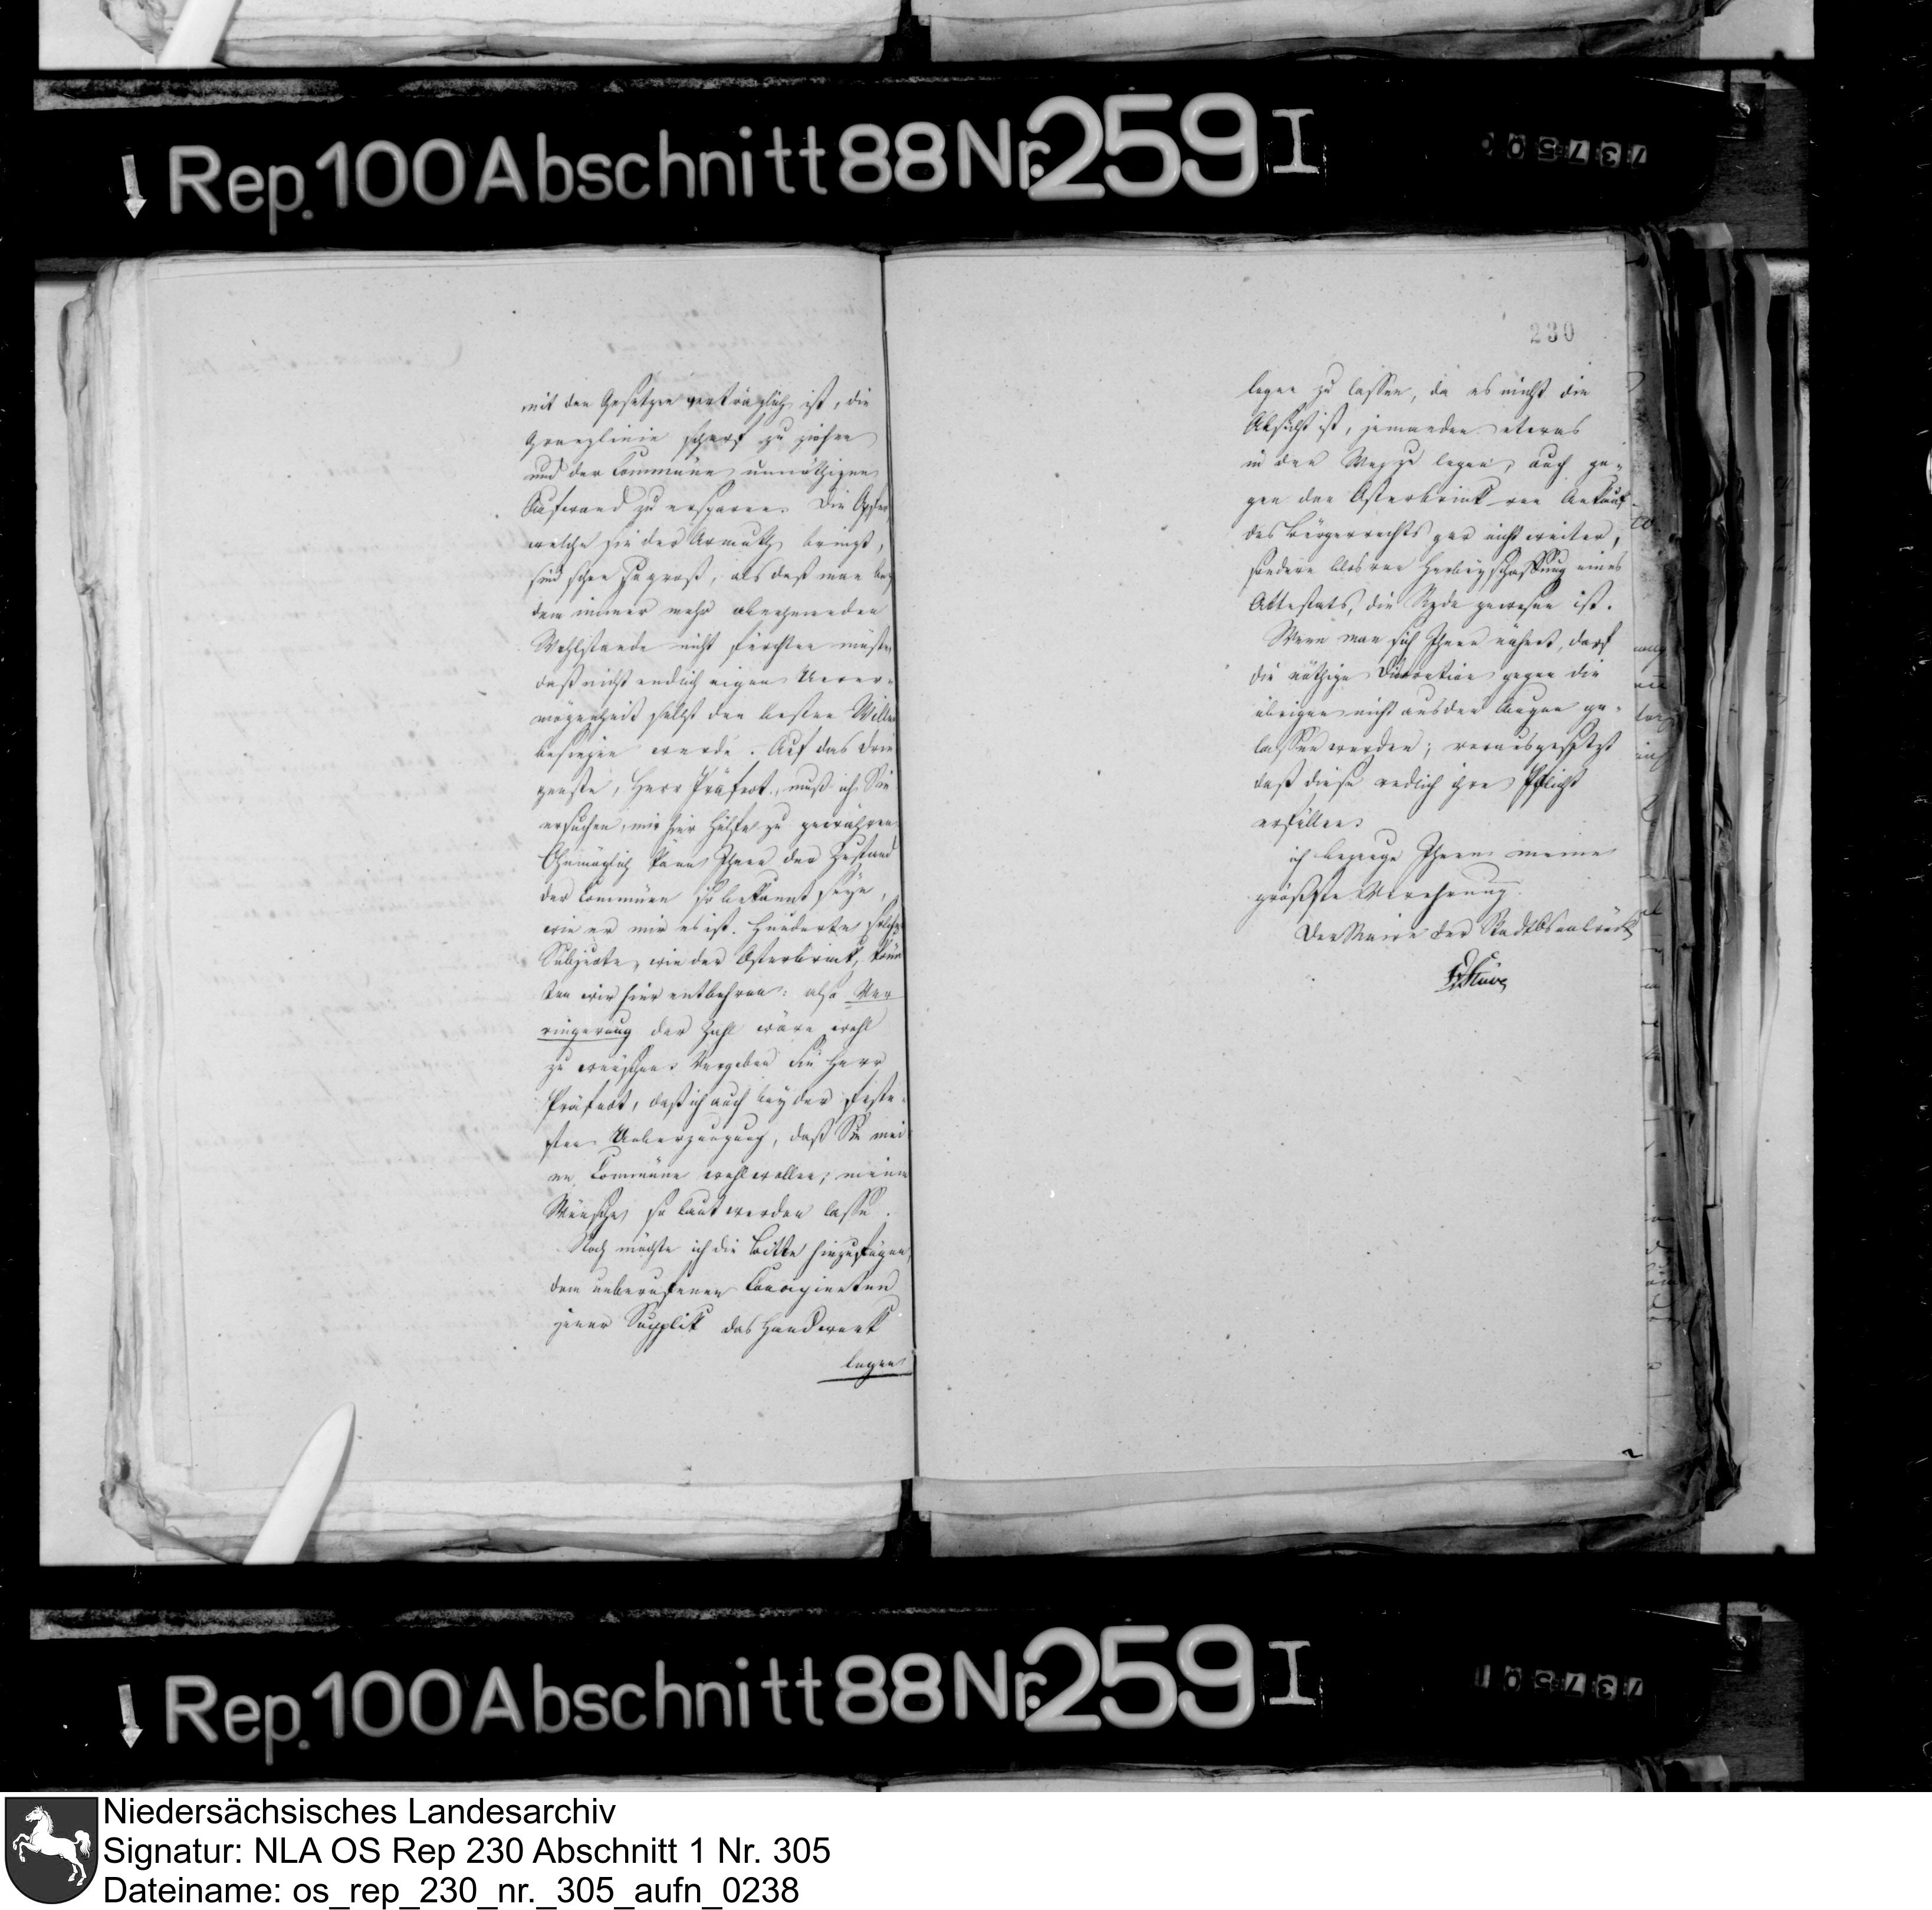 ↓ Rep. 100 Abschnitt 88 Nr. 259 I
mit den Gesetzen verträglich ist, die
Grenzlinie scharf zu ziehen
und der Commüne unnöthigen
Aufwand zu ersparen. Die Opfer,
welche sie der Armuth bringt,
sind schon zu groß, als daß man bey
dem immer mehr abnehmenden
Wohlstande nicht fürchten müßte,
daß nicht endlich eigne Unver-
mögenheit selbst den besten Willen
besiegen werde. Auf das drin
genste, Herr Präfect, muß ich Sie
ersuchen, mir hier Hülfe zu gewähren.
Ohnmöglich kann Ihnen der Zustand
der Commüne so bekannt seyn,
wie er mir es ist. Hunderte solcher
Subjecte, wie der Osterbrink, könn
ten wir hier entbehren: also Ver
ringerung der Zahl wäre wohl
zu wünschen. Vergeben Sie Herr
Präfect, daß ich auch bey der feste-
sten Ueberzeugung, daß Sie mei
ner Commüne wohlwollen, meine
Wünsche so laut werden lasse.
Noch möchte ich die Bitte hinzufügen,
dem unberufenen Concipienten
jener Supplik das Handwerk
legen
230
legen zu lassen, da es nicht die
Absicht ist, jemanden etwas
in den Weg zu legen, auch ge-
gen den Osterbrink von Ankauf
des Bürgerrechts gar nicht weiter,
sondern blos von Herbeyschaffung eines
Attestats, die Rede gewesen ist.
Wenn man sich Ihnen nähert, darf
die nöthige Discretion gegen die
übrigen nicht aus den Augen ge-
lassen werden; vorausgesetzt
daß diese redlich ihre Pflicht
erfüllen.
ich bezeuge Ihnen meine
größeste Verehrung.
Der Maire der Stadt Osnabrück
Stüve
↓ Rep. 100 Abschnitt 88 Nr. 259 I
Niedersächsisches Landesarchiv
Signatur: NLA OS Rep 230 Abschnitt 1 Nr. 305
Dateiname: os_rep_230_nr._305_aufn_0238